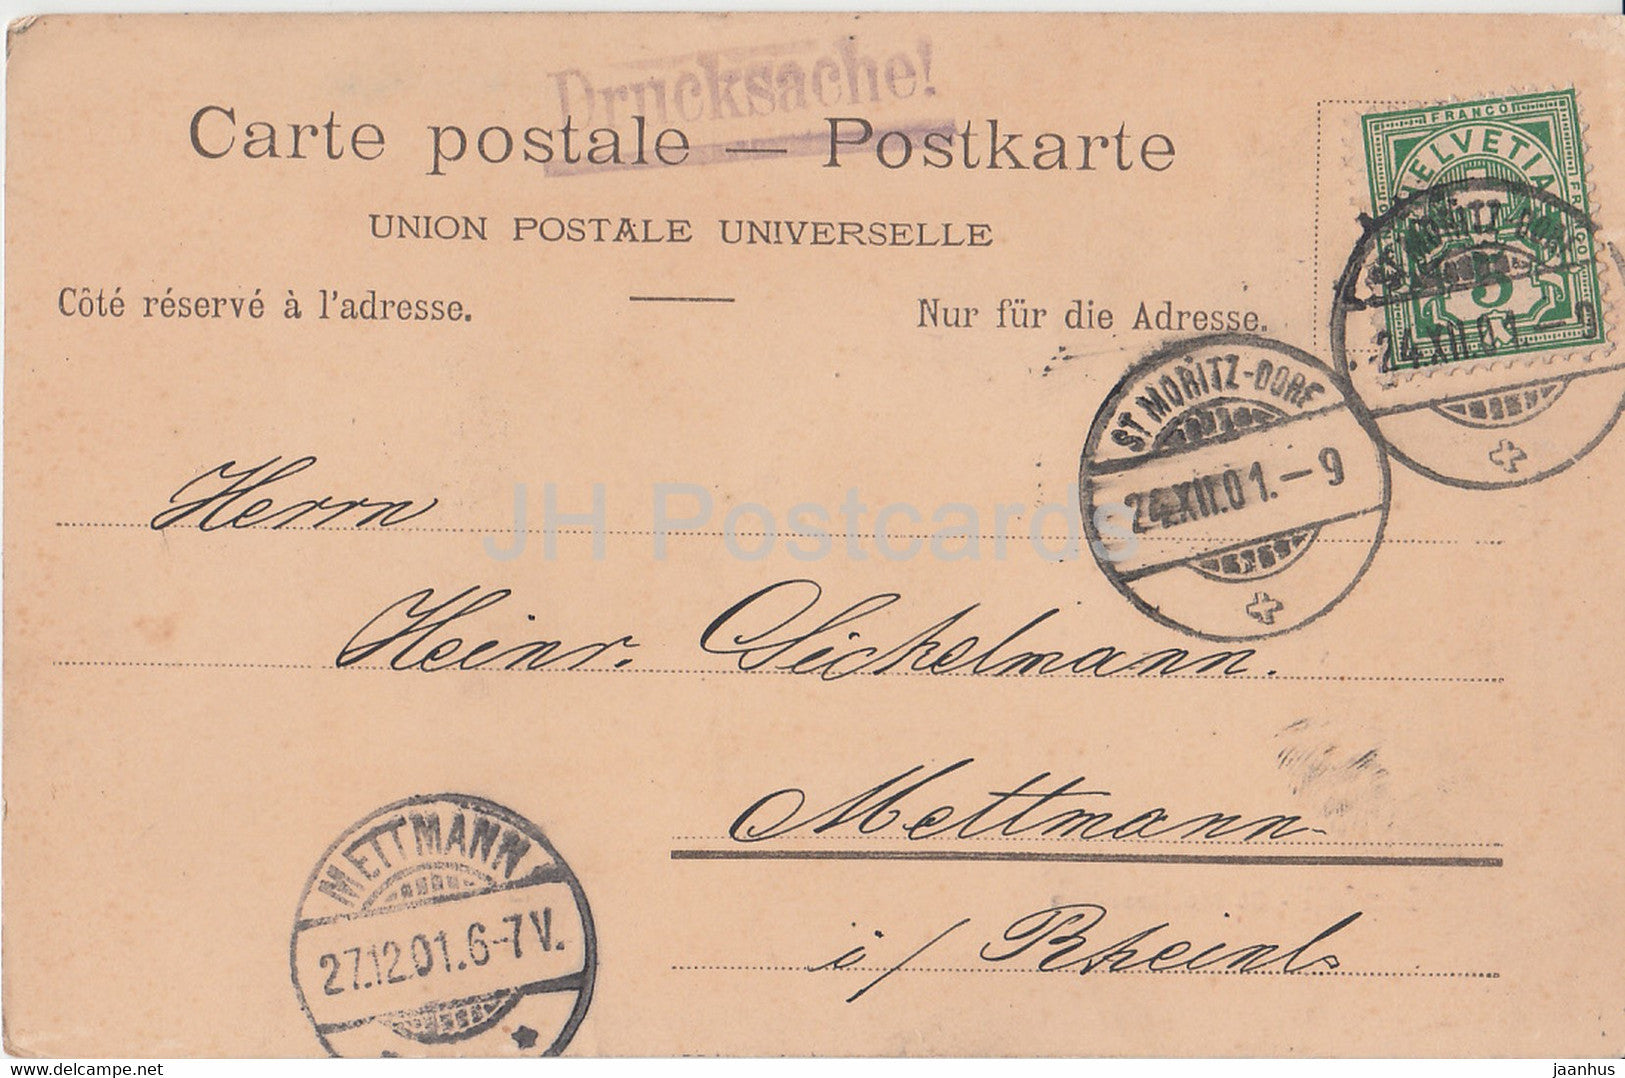 Drucksache!
Carte postale — Postkarte
UNION POSTALE UNIVERSELLE
Côté réservé à l'adresse.
Nur für die Adresse.
FRANCO
HELVETIA
FRANCO
5
ST MORITZ-DORF
24.XII.01.-9
ST MORITZ-DORF
24.XII.01.-9
JH Postcards
Herrn
Heinr. Sickelmann.
Mettmann
i/ Rheinl
METTMANN
27.12.01.6-7V.
Bid Live on Delcampe.net
jaanhus